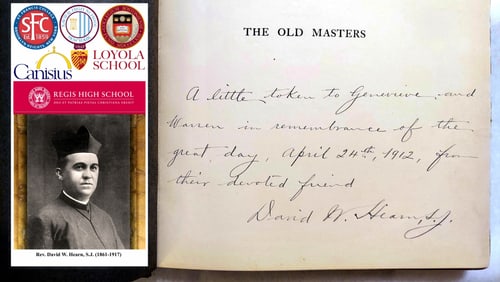 SFC
1859
LOYOLA
SCHOOL
Canisius
REGIS HIGH SCHOOL
Rev. David W. Hearn, S.J. (1861-1917)
THE OLD MASTERS
A little token to Genevieve and
Warren in remembrance of the
great day, April 24th, 1912, from
their devoted friend
David W. Hearn, S.J.